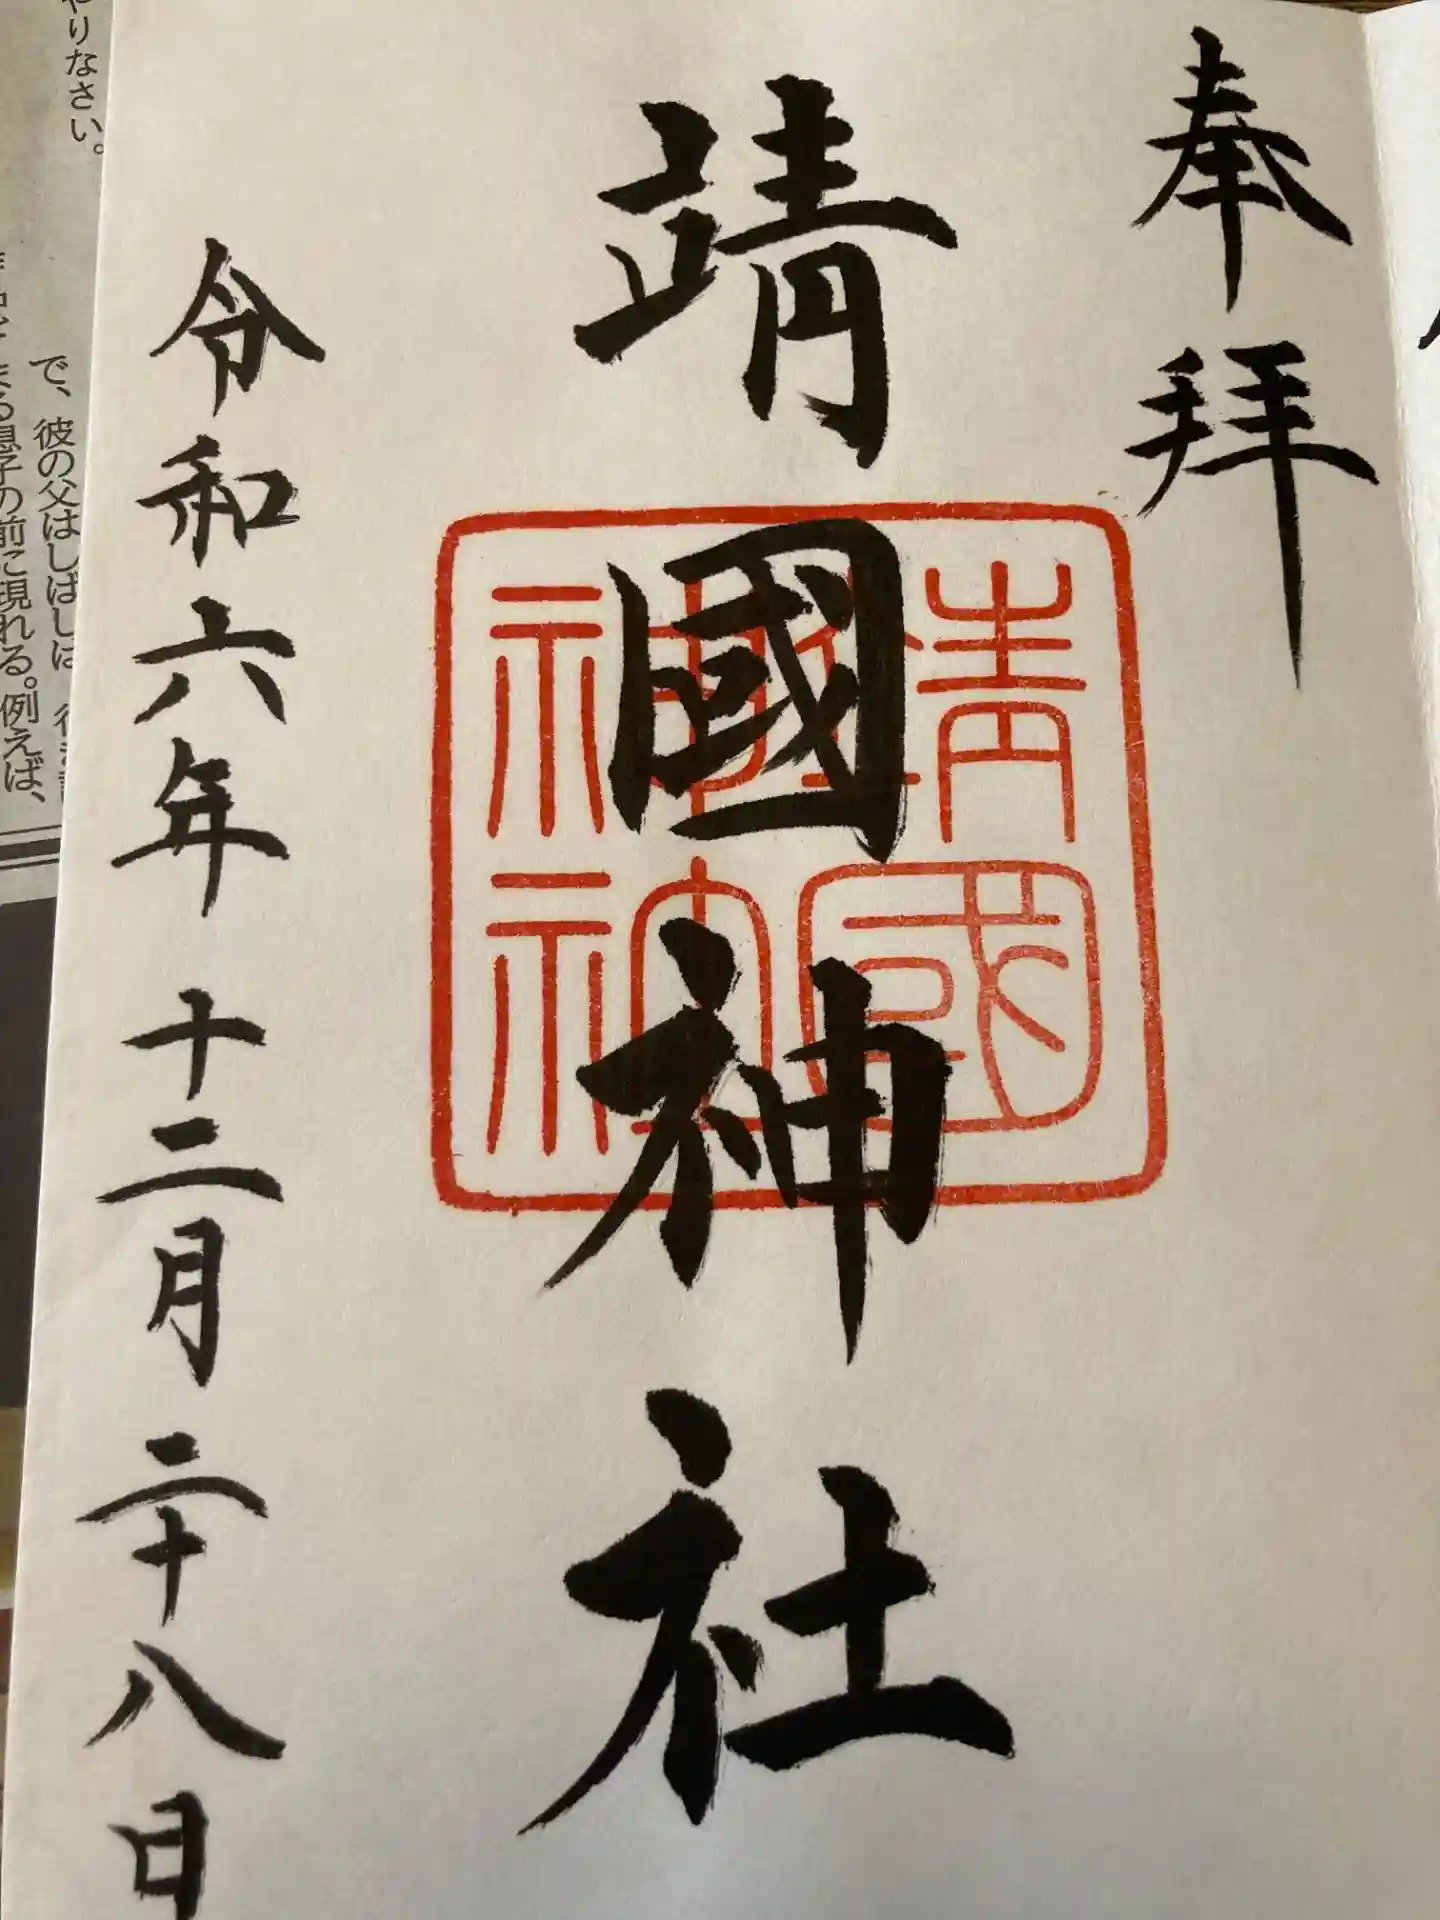 奉拝
靖國神社
靖國神社
令和六年十二月二十八日
やりなさい。
で、彼の父はしばしば
まる息子の前に現れる。例えば、